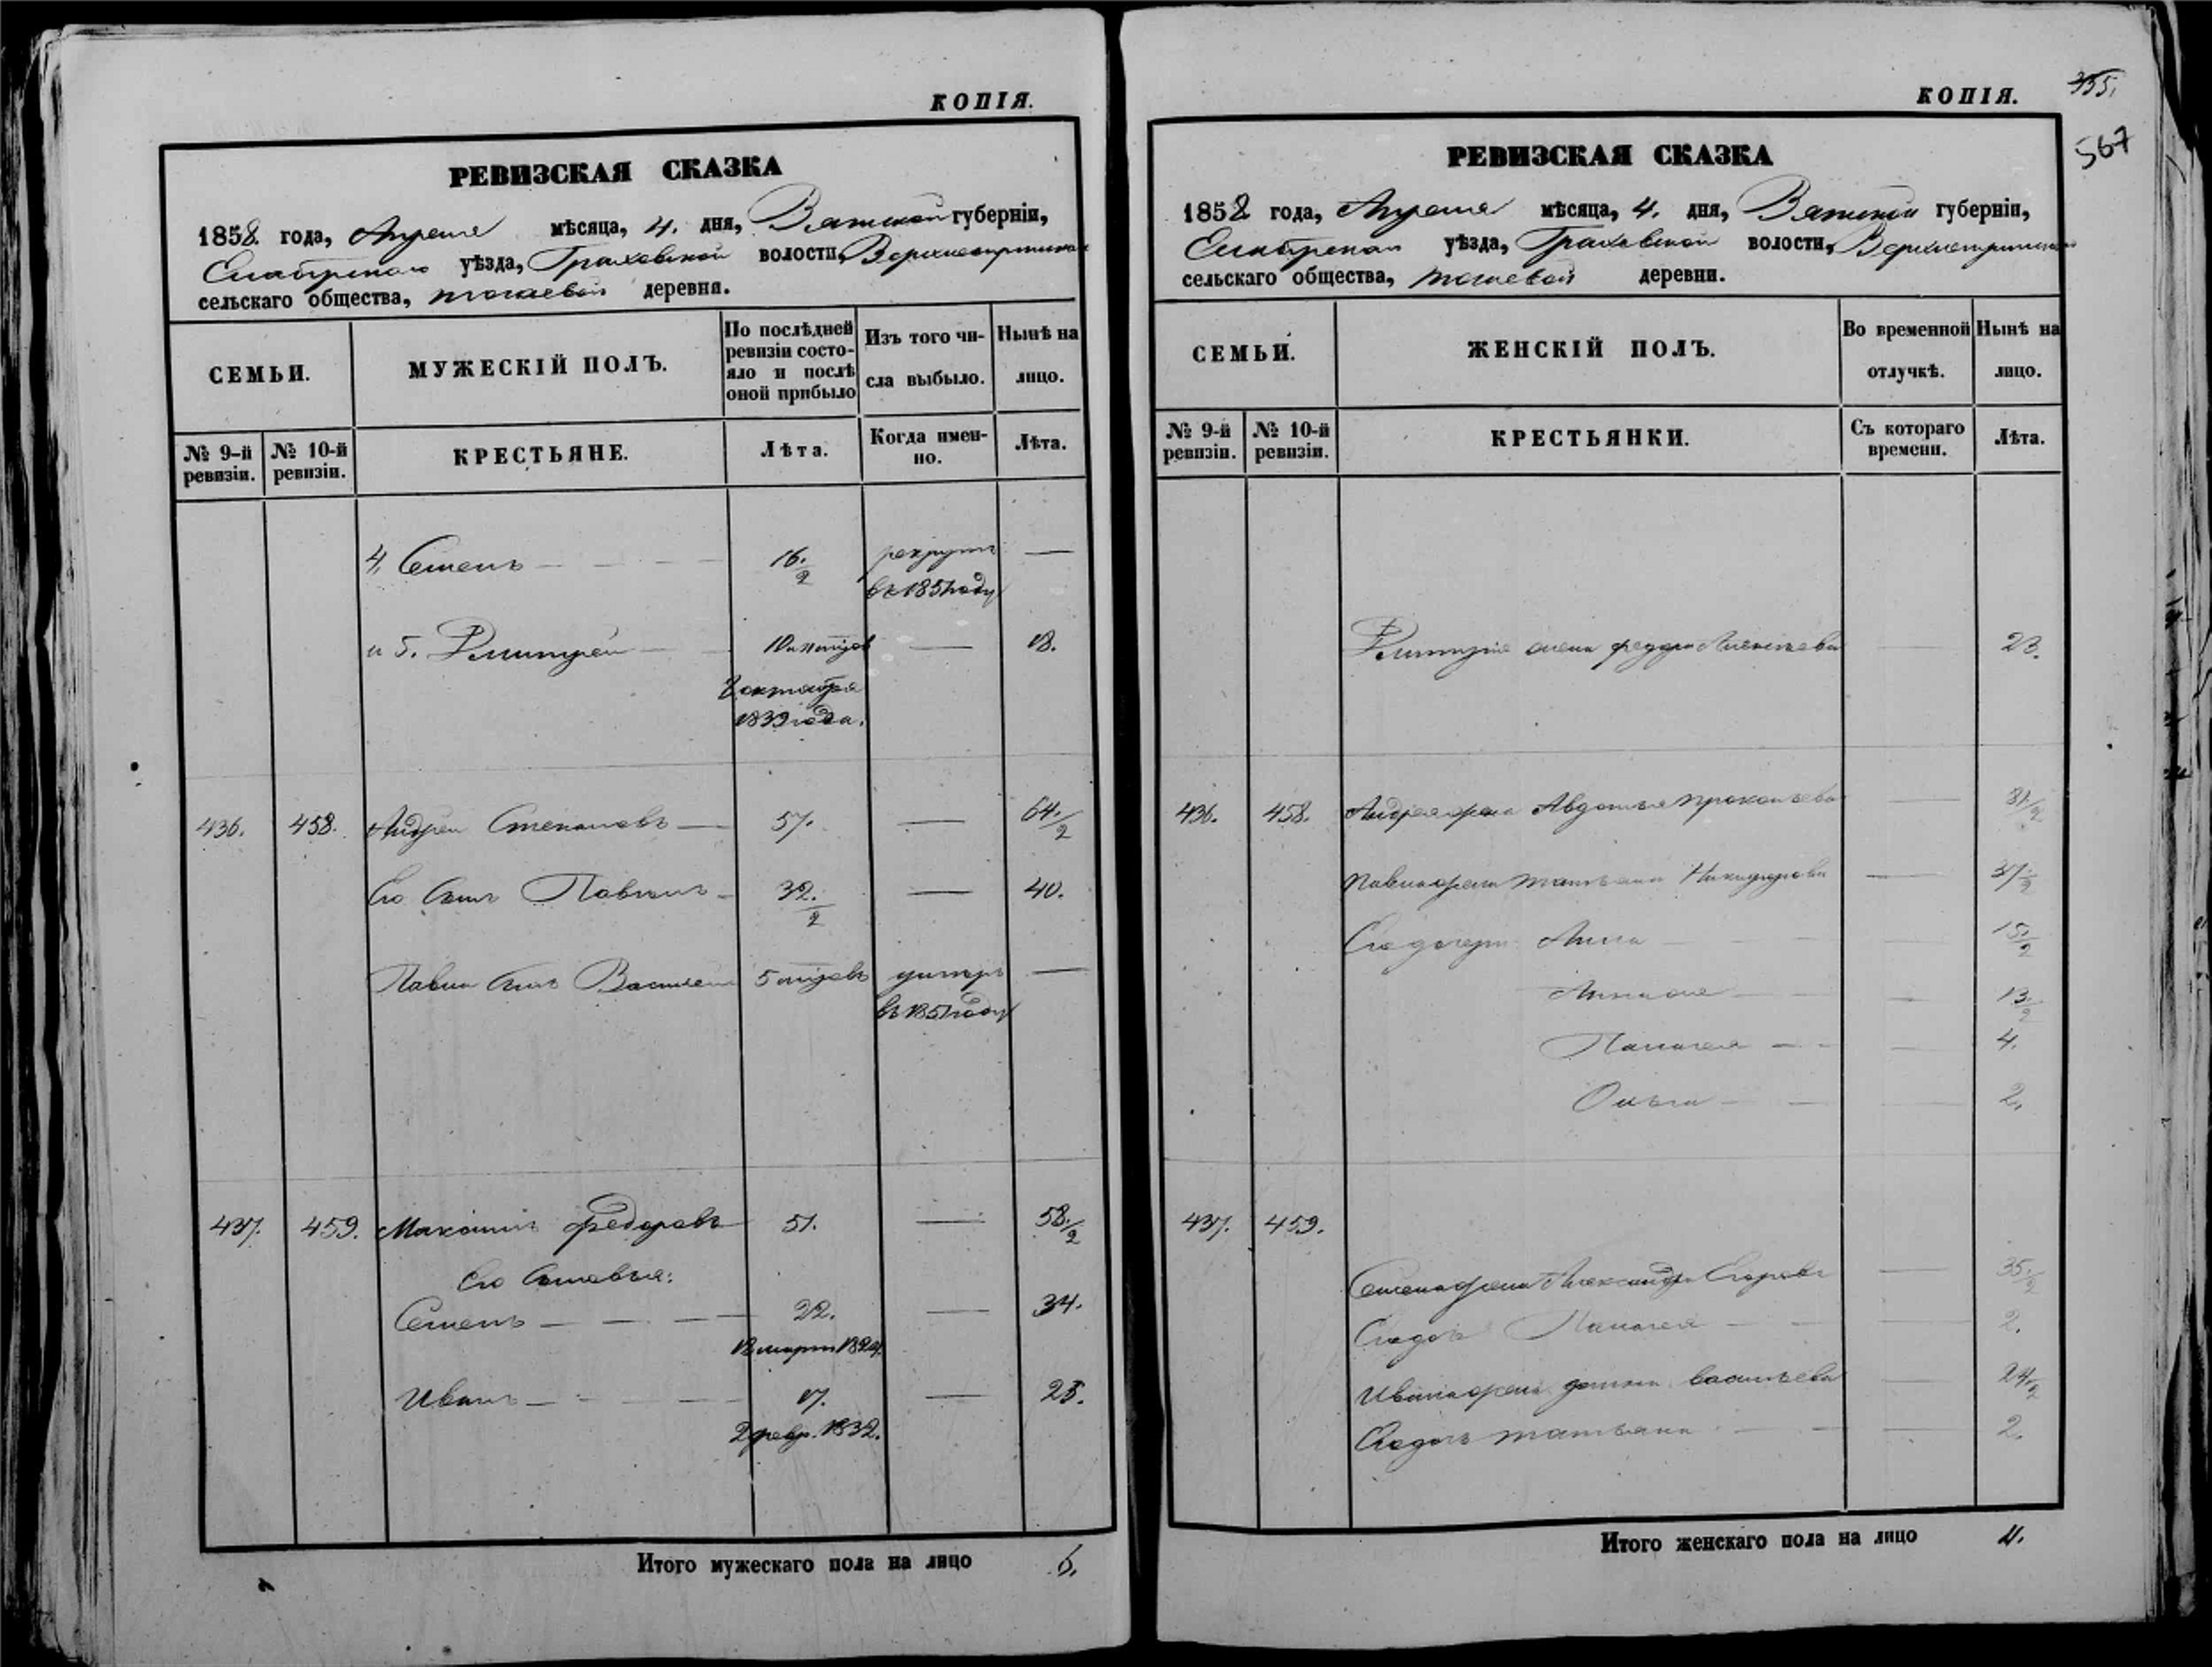 КОПІЯ.
РЕВИЗСКАЯ СКАЗКА
1858 года, Апреля мѣсяца, 4. дня, Вятской губерніи,
уѣзда, Граховской волости,
сельскаго общества, деревня.
СЕМЬИ.
МУЖЕСКІЙ ПОЛЪ.
По послѣдней ревизіи состо-
яло и послѣ оной прибыло
Изъ того чи-
сла выбыло.
Нынѣ на
лицо.
№ 9-й ревизіи.
№ 10-й ревизіи.
КРЕСТЬЯНЕ.
Лѣта.
Когда имен-
но.
Лѣта.
4, Семенъ 16. 1/2 рекрутъ —
въ 1857 году
и 5. Дмитрей — 18.
октября
1839 года.
436. 458. Андрей Степановъ — 57. — 64. 1/2
Его сынъ Павелъ 32. 1/2 — 40.
Павла сынъ Василей 5 умеръ —
въ 1851 году
437. 459. Максимъ Федоровъ 51. — 58. 1/2
Его сыновья:
Семенъ 22. — 34.
марта 1824.
Иванъ 17. — 25.
2 февр. 1832.
Итого мужескаго пола на лицо 6.
КОПІЯ.
355.
567
РЕВИЗСКАЯ СКАЗКА
1858 года, Апреля мѣсяца, 4. дня, Вятской губерніи,
уѣзда, Граховской волости,
сельскаго общества, деревни.
СЕМЬИ.
ЖЕНСКІЙ ПОЛЪ.
Во временной
отлучкѣ.
Нынѣ на
лицо.
№ 9-й ревизіи.
№ 10-й ревизіи.
КРЕСТЬЯНКИ.
Съ котораго
времени.
Лѣта.
Дмитрія жена 23.
436. 458. Андрея жена Авдотья Прокопьева —
Павла жена Татьяна Никифорова — 37. 1/2
Его дочери Анна 15. 1/2
13. 1/2
Палагея — 4.
Ольга — 2.
437. 459.
Семена жена Александра Егорова — 35. 1/2
Его дочь Палагея — 2.
Ивана жена Васильева — 24. 1/2
Его дочь Татьяна — 2.
Итого женскаго пола на лицо 11.